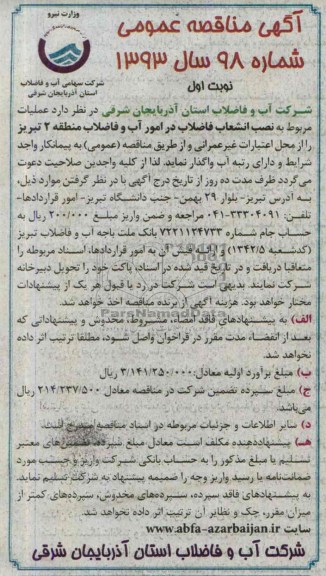 وزارت نیرو
شرکت سهامی آب و فاضلاب
استان آذربایجان شرقی
آگهی مناقصه عمومی
شماره ۹۸ سال ۱۳۹۳
نوبت اول
شرکت آب و فاضلاب استان آذربایجان شرقی در نظر دارد عملیات
مربوط به نصب انشعاب فاضلاب در امور آب و فاضلاب منطقه ۲ تبریز
را از محل اعتبارات غیرعمرانی و از طریق مناقصه (عمومی) به پیمانکار واجد
شرایط و دارای رتبه آب واگذار نماید، لذا از کلیه واجدین صلاحیت دعوت
می‌گردد ظرف مدت ده روز از تاریخ درج آگهی با در نظر گرفتن موارد ذیل،
به آدرس تبریز- بلوار ۲۹ بهمن- جنب دانشگاه تبریز- امور قراردادها-
تلفن: ۳۳۳۰۴۰۹۱-۰۴۱ مراجعه و ضمن واریز مبلغ ۲۰۰/۰۰۰ ریال به
حساب جام شماره ۷۲۲۱۱۳۴۷۳۳ بانک ملت باجه آب و فاضلاب تبریز
(کدشعبه ۱۳۴۲/۵) و ارائه فیش آن به امور قراردادها، اسناد مربوطه را
متعاقبا دریافت و در تاریخ قید شده در اسناد، پاکت خود را تحویل دبیرخانه
شرکت نمایند. بدیهی است شرکت در رد یا قبول هر یک از پیشنهادات
مختار خواهد بود. هزینه آگهی از برنده مناقصه اخذ خواهد شد.
الف) به پیشنهادهای فاقد امضاء، مشروط، مخدوش و پیشنهاداتی که
بعد از انقضاء مدت مقرر در فراخوان واصل شود، مطلقا ترتیب اثر داده
نخواهد شد.
ب) مبلغ برآورد اولیه معادل: ۳/۱۴۱/۲۵۰/۰۰۰ ریال
ج) مبلغ سپرده تضمین شرکت در مناقصه معادل ۲۱۴/۲۳۷/۵۰۰ ریال
می‌باشد.
د) سایر اطلاعات و جزئیات مربوطه در اسناد مناقصه مندرج است.
هـ) پیشنهاددهنده مکلف است معادل مبلغ سپرده، تضمین‌های معتبر
تسلیم یا مبلغ مذکور را به حساب بانکی شرکت واریز و حسب مورد
ضمانت‌نامه یا رسید واریز وجه را ضمیمه پیشنهاد به شرکت تسلیم نماید.
به پیشنهادهای فاقد سپرده، سپرده‌های مخدوش، سپرده‌های کمتر از
میزان مقرر، چک و نظایر آن ترتیب اثر داده نخواهد شد.
سایت www.abfa-azarbaijan.ir
شرکت آب و فاضلاب استان آذربایجان شرقی
ParsNamadData